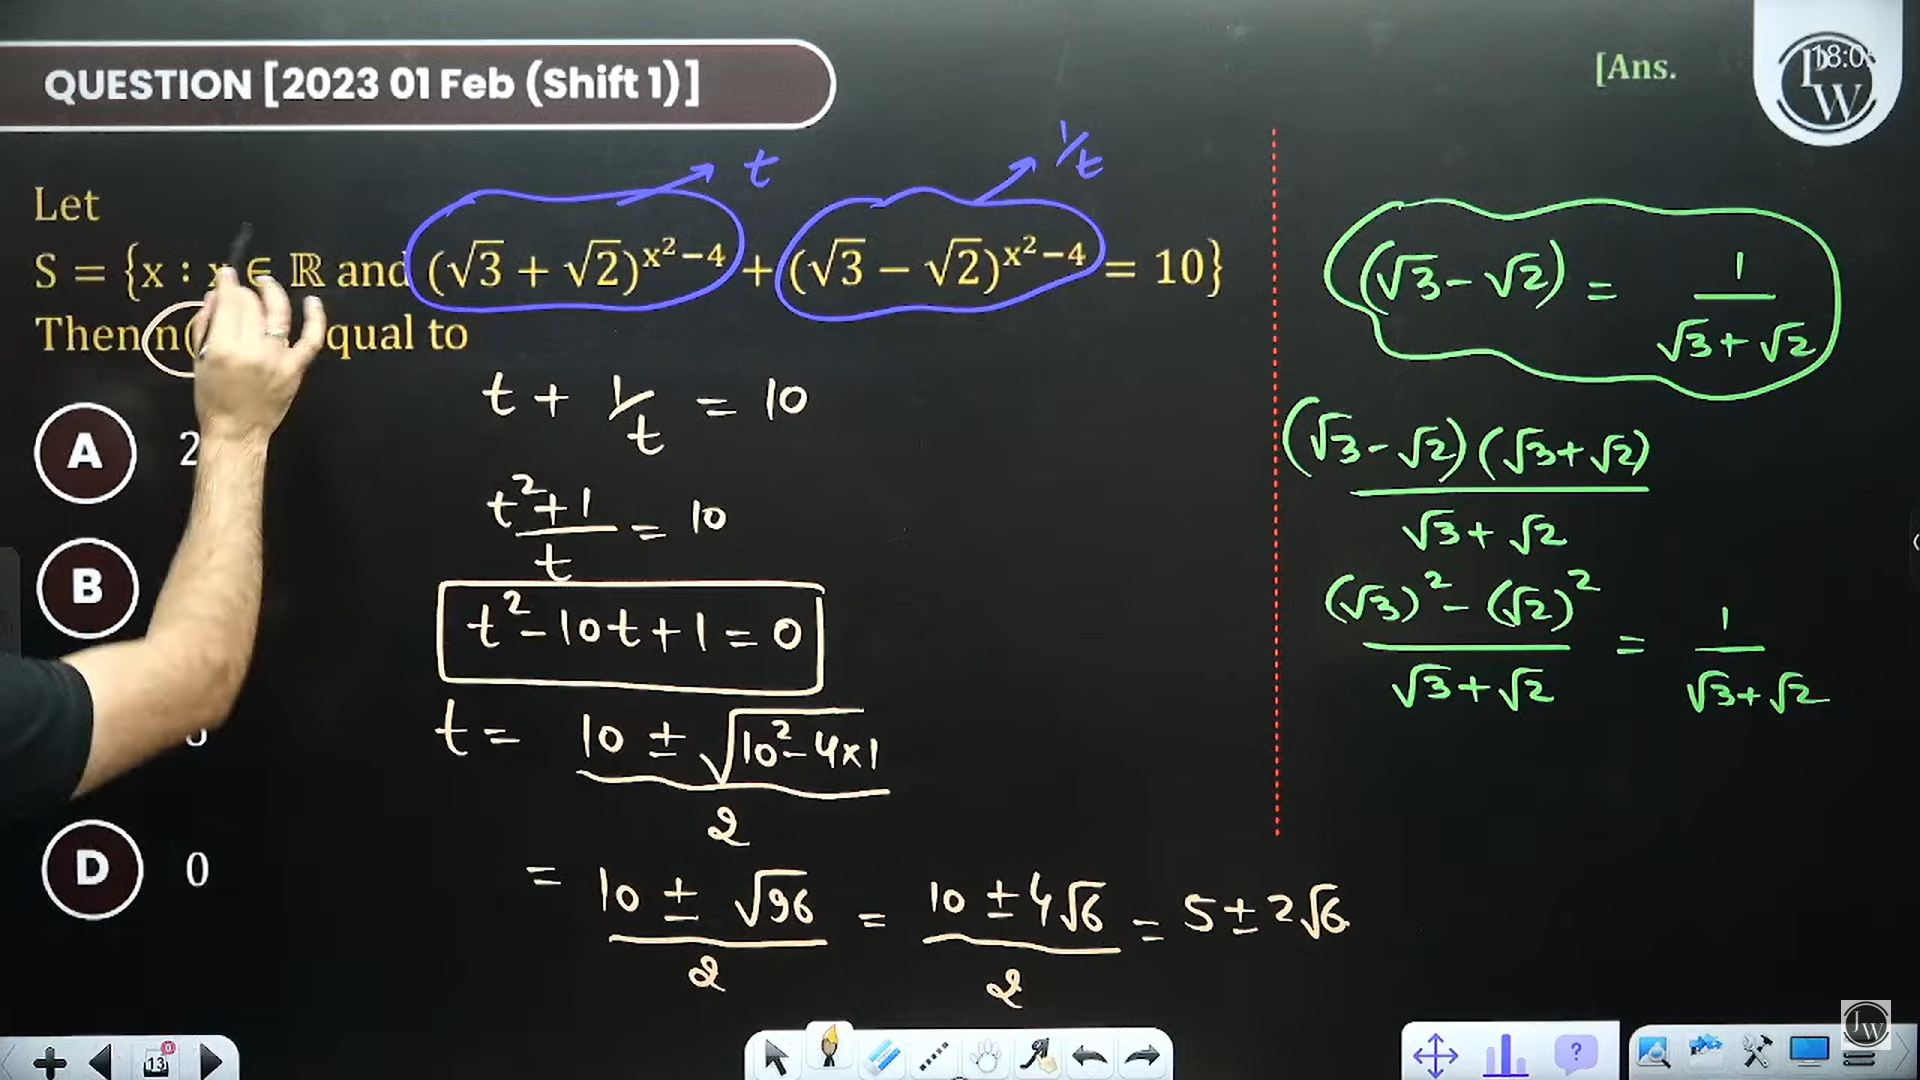 QUESTION [2023 01 Feb (Shift 1)]
[Ans.
18:0
W
t
1/t
Let
S = {x : x ∈ ℝ and (√3 + √2)^(x²−4) + (√3 − √2)^(x²−4) = 10}
Then n( qual to
A 2
B
D 0
t + 1/t = 10
(t² + 1)/t = 10
t² - 10t + 1 = 0
t = (10 ± √(10² - 4×1))/2
= (10 ± √96)/2 = (10 ± 4√6)/2 = 5 ± 2√6
(√3 - √2) = 1/(√3 + √2)
(√3 - √2)(√3 + √2)/(√3 + √2)
((√3)² - (√2)²)/(√3 + √2) = 1/(√3 + √2)
13
W